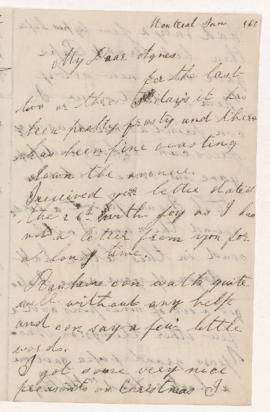 Montreal Jan
My Dear Agnes
for the last
two or three days it has
been pretty frosty and there
has been fine coasting
down the avenue.
I received your letter dated
the 26th with joy as I had
not a letter from you for
a long time.
can walk quite
well without any help
and can say a few little
words.
I got some very nice
presents on Christmas I